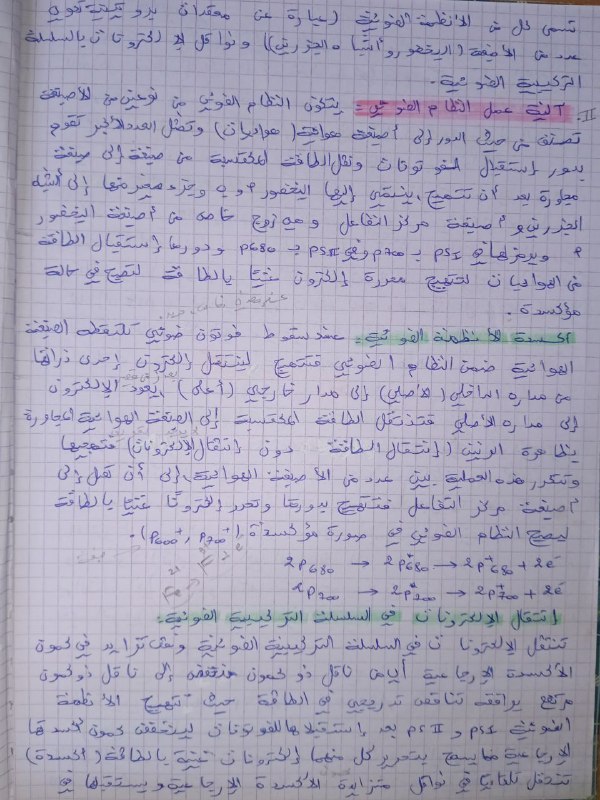 تسمى كل من الأنظمة الضوئية (عبارة عن معقدات بروتينية تحوي
عدد من الأصبغة (اليخضور وأشباه الجزرين)) ونواقل الإلكترونات بالسلسلة
التركيبية الضوئية.
II- آلية عمل النظام الضوئي: يتكون النظام الضوئي من نوعين من الأصبغة
تصنف من حيث الدور إلى أصبغة هوائية (هوائيات) وتمثل العدد الأكبر تقوم
بدور إستقبال الفوتونات ونقل الطاقة المكتسبة من صبغة إلى صبغة
مجاورة بعد أن تتهيج، ينتمي إليها اليخضور a و b وجزء صغير منها إلى أشباه
الجزرين و أصبغة مركز التفاعل وهي زوج خاص من أصبغة اليخضور
a ويرمز لها في PSI بـ P700 وفي PSII بـ P680 ودورها إستقبال الطاقة
من الهوائيات لتتهيج محررة إلكترون غنيا بالطاقة لتصبح في حالة
مؤكسدة.
أكسدة الأنظمة الضوئية: عند سقوط فوتون ضوئي تلتقطه الصبغة
الهوائية ضمن النظام الضوئي فتتهيج لينتقل إلكترون إحدى ذراتها
من مداره الداخلي (الأصلي) إلى مدار خارجي (أعلى)، يعود الإلكترون
إلى مداره الأصلي فتنتقل الطاقة المكتسبة إلى الصبغة الهوائية المجاورة
بظاهرة الرنين (إنتقال الطاقة دون إنتقال الإلكترونات) فتهيجها
وتتكرر هذه العملية بين عدد من الأصبغة الهوائية، إلى أن تصل إلى
أصبغة مركز التفاعل فتتهيج بدورها وتحرر إلكترونا غنيا بالطاقة
ليصبح النظام الضوئي في صورة مؤكسدة (P680⁺, P700⁺).
2P680 → 2P*680 → 2P⁺680 + 2e⁻
2P700 → 2P*700 → 2P⁺700 + 2e⁻
إنتقال الإلكترونات في السلسلة التركيبية الضوئية:
تنتقل الإلكترونات في السلسلة التركيبية الضوئية وفق تزايد في كمون
الأكسدة الإرجاعية أي من ناقل ذو كمون منخفض إلى ناقل ذو كمون
مرتفع يوافقه تناقص تدريجي في الطاقة حيث تتهيج الأنظمة
الضوئية PSI و PSII بعد إستقبالها للفوتونات لينخفض كمون أكسدتها
الإرجاعية مما يسمح بتحرير كل منهما إلكترونات غنية بالطاقة (أكسدة)
تنتقل تلقائيا في نواقل متزايدة الأكسدة الإرجاعية ويستقبلها في